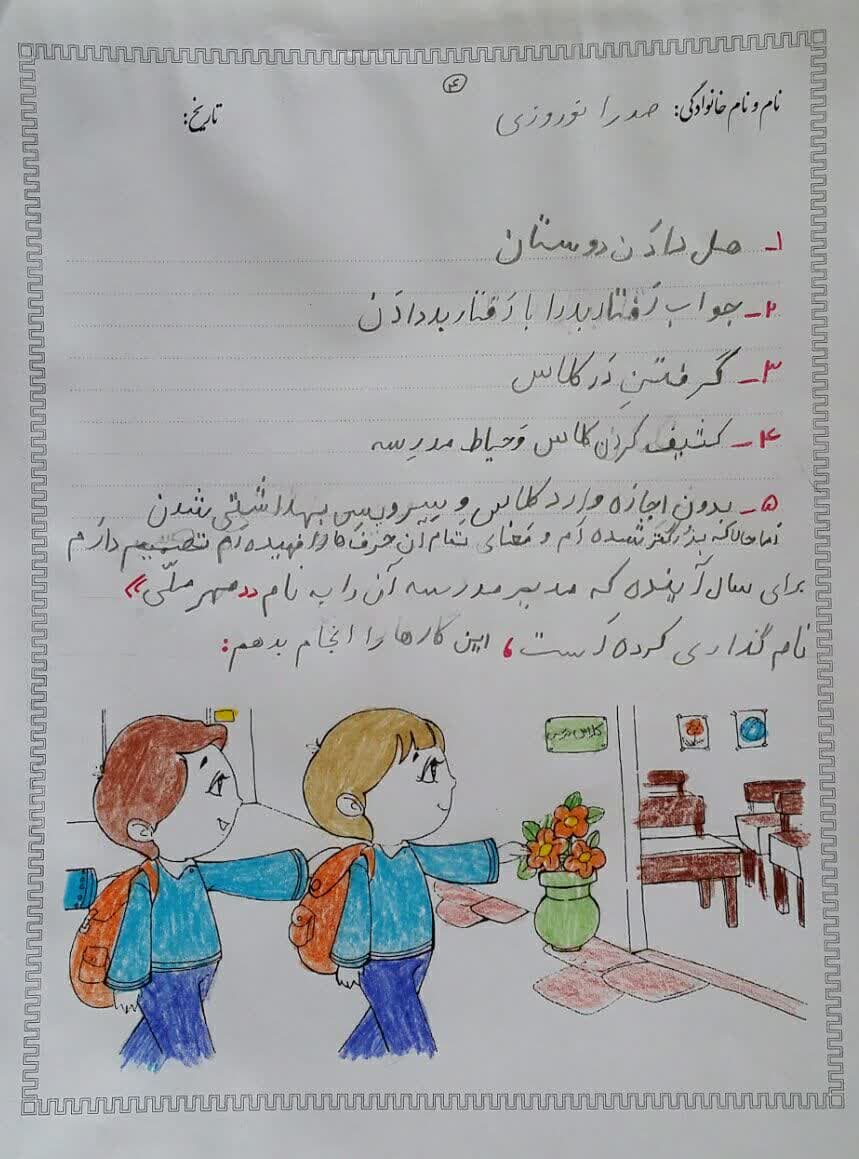 ۴
نام و نام خانوادگی: صدرا نوروزی
تاریخ:
۱- هل دادن دوستان
۲- جواب رَفتار بد را با رَفتار بد دادَن
۳- گرفتنِ دَر کلاس
۴- کثیف کردن کلاس وَ حیاط مدرِسه
۵- بدون اجازه وارد کلاس و سِرویس بهداشتی شدن
اَما حالا که بزرگتَر شده اَم و مَعنای تَمام آن حَرف ها را فهمیده اَم تَصمیم دارَم
برای سال آینده که مدیر مدرسه آن را به نام «مهر ملّی»
نام گذاری کرده اَست، این کارها را انجام بدهم:
کلاس درس